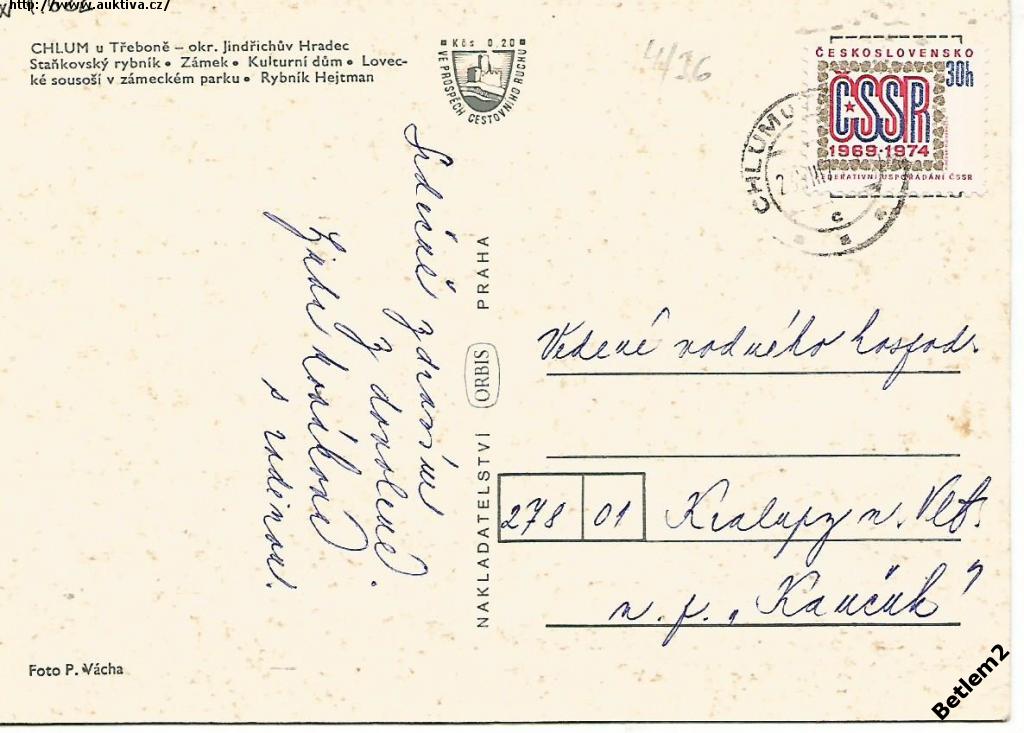 http://www.auktiva.cz/
CHLUM u Třeboně – okr. Jindřichův Hradec
Staňkovský rybník • Zámek • Kulturní dům • Lovec-
ké sousoší v zámeckém parku • Rybník Hejtman
Kčs 0,20
VE PROSPĚCH CESTOVNÍHO RUCHU
4/36
ČESKOSLOVENSKO
30h
ČSSR
1969-1974
FEDERATIVNÍ USPOŘÁDÁNÍ ČSSR
CHLUM U
c
Srdečné
z dovolené.
s rodinou.
NAKLADATELSTVÍ ORBIS PRAHA
Vedení vodného hospod.
278 01 Kralupy n. Vlt.
n. p. „Kaučuk"
Foto P. Vácha
Betlem2